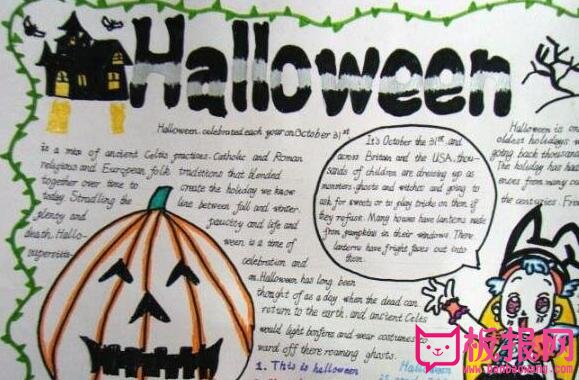 Halloween
Halloween, celebrated each year on October 31st
is a mix of ancient Celtic practices, Catholic and Roman
religious and European folk traditions that blended
together over time to create the holiday we know
today. Stradling the line between fall and winter,
plenty and paucity and life and
death, Hallo- ween is a time of
superstiti- celebration and
on. Halloween has long been
thought of as a day when the dead can
return to the earth, and ancient Celts
would light bonfires and wear costumes to
ward off these roaming ghosts.
1. This is halloween
It's October the 31st and
across Britain and the USA, thou-
sands of children are dressing up as
monsters ghosts and witches and going to
ask for sweets or to play tricks on them if
they refuse. Many houses have lanterns made
from pumpkins in their windows. These
lanterns have fright faces cut into
them.
Halloween is on
oldest holidays w
going back thousand
The holiday has had
ences from many co
the centuries. Fro
Halloween
板报网
www.banbaowang.com